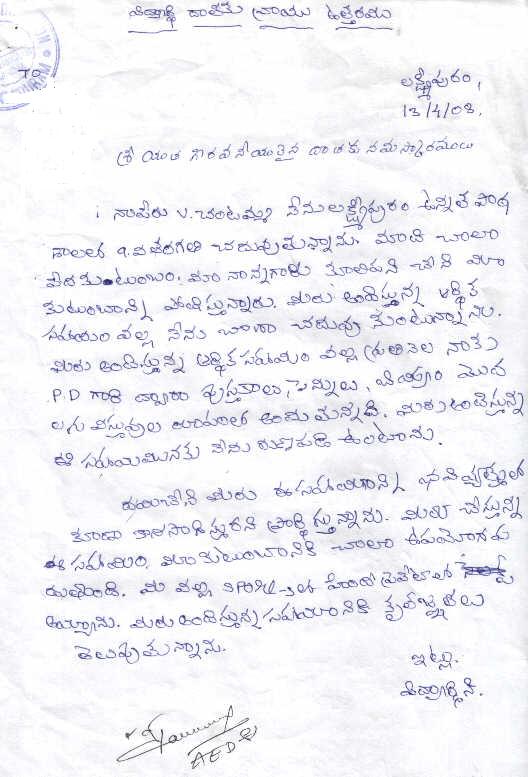 విద్యార్థి దాతకు వ్రాయు ఉత్తరము
TO
లక్ష్మీపురం,
13/4/08.
శ్రీ యుత గౌరవనీయులైన దాతకు నమస్కారములు
నాపేరు V. చంటమ్మ నేను లక్ష్మీపురం ఉన్నత పాఠ
శాలలో 9వ తరగతి చదువుతున్నాను. మాది చాలా
పేద కుటుంబం. మా నాన్నగారు కూలిపని చేసి మా
కుటుంబాన్ని పోషిస్తున్నారు. మీరు అందిస్తున్న ఆర్థిక
సహాయం వల్ల నేను బాగా చదువు కుంటున్నాను.
మీరు అందిస్తున్న ఆర్థిక సహాయం వల్ల ప్రతి నెల నాకు
P.D గారి ద్వారా పుస్తకాలు, పెన్నులు, బియ్యం మొద
లగు వస్తువుల రూపంలో అందుచున్నది. మీరు అందిస్తున్న
ఈ సహాయమునకు నేను రుణపడి ఉంటాను.
దయచేసి మీరు ఈ సహాయాన్ని భవిష్యత్తులో
కూడా కొనసాగించాలని ప్రార్థిస్తున్నాను. మీరు చేస్తున్న
ఈ సహాయం, మా కుటుంబానికి చాలా ఉపయోగప
డుతుంది. మీ వల్ల
అయ్యాను. మీరు అందిస్తున్న సహాయానికి కృతజ్ఞతలు
తెలుపుతున్నాను.
ఇట్లు.
విద్యార్థిని.
AED